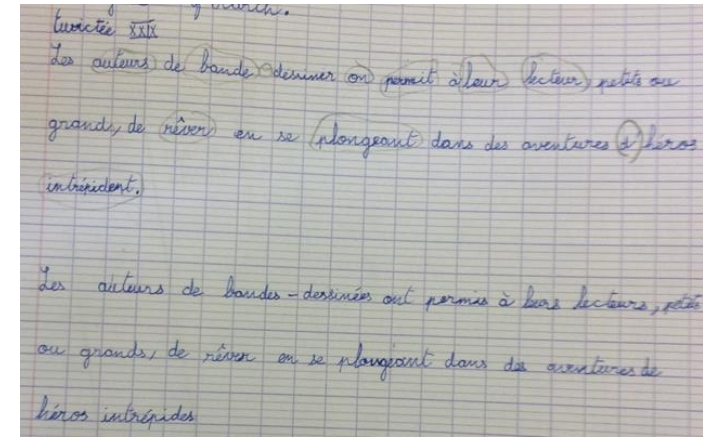 twictée XXIX
Les auteurs de bande dessiner on permit à leur lecteur, petits ou
grands, de rêver en se plongeant dans des aventures d'héros
intrépident.
Les auteurs de bandes-dessinées ont permis à leurs lecteurs, petits
ou grands, de rêver en se plongeant dans des aventures de
héros intrépides